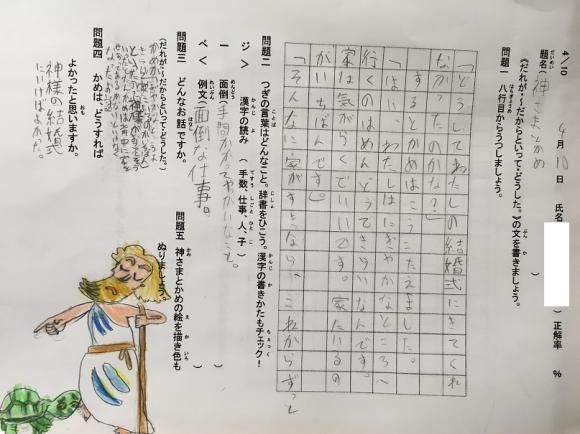 4/10
題名(神さまとかめ)
4月10日 氏名( )正解率 %
《だれが・〜だからといって・どうした。》の文を書きましょう。
問題一 八行目からうつしましょう。
「どうしてわたしの結婚式にきてくれ
なかったのかな?」
するとかめはこうこたえました。
「はい、わたしはにぎやかなところへ
行くのはめんどうできらいなんです。
家は気がらくでいいです。家にいるの
がいちばんです。」
「そんなに家がすきなら、これからずっと
問題二 つぎの言葉はどんなこと。辞書をひこう。漢字の書きかたもチェック!
ジ> 漢字の読み(手数、仕事、人、子)
一 面倒(手間かかってやっかいなこと。)
べ< 例文(面倒な仕事。)
問題三 どんなお話ですか。
(だれが・〜だからといって・どうした。)
問題四 かめは、どうすれば
よかったと思いますか。
神様の結婚式
にいけばよかった。
問題五 神さまとかめの絵を描き色も
ぬりましょう。